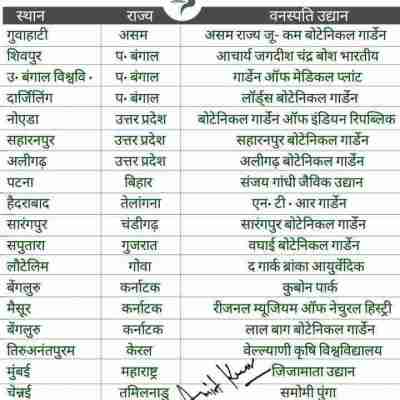 स्थान राज्य वनस्पति उद्यान
गुवाहाटी असम असम राज्य जू- कम बोटेनिकल गार्डेन
शिवपुर प॰ बंगाल आचार्य जगदीश चंद्र बोश भारतीय
उ॰ बंगाल विश्ववि॰ प॰ बंगाल गार्डेन ऑफ मेडिकल प्लांट
दार्जिलिंग प॰ बंगाल लॉर्ड्स बोटेनिकल गार्डेन
नोएडा उत्तर प्रदेश बोटेनिकल गार्डेन ऑफ इंडियन रिपब्लिक
सहारनपुर उत्तर प्रदेश सहारनपुर बोटेनिकल गार्डेन
अलीगढ़ उत्तर प्रदेश अलीगढ़ बोटेनिकल गार्डेन
पटना बिहार संजय गांधी जैविक उद्यान
हैदराबाद तेलांगना एन॰ टी॰ आर गार्डेन
सारंगपुर चंडीगढ़ सारंगपुर बोटेनिकल गार्डेन
सपुतारा गुजरात वघाई बोटेनिकल गार्डेन
लौटेलिम गोवा द गार्क ब्रांका आयुर्वेदिक
बेंगलुरु कर्नाटक कुबोन पार्क
मैसूर कर्नाटक रीजनल म्यूजियम ऑफ नेचुरल हिस्ट्री
बेंगलुरु कर्नाटक लाल बाग बोटेनिकल गार्डेन
तिरुअनंतपुरम केरल वेल्ल्याणी कृषि विश्वविद्यालय
मुंबई महाराष्ट्र जिजामाता उद्यान
चेन्नई तमिलनाडु समोमी पुंगा